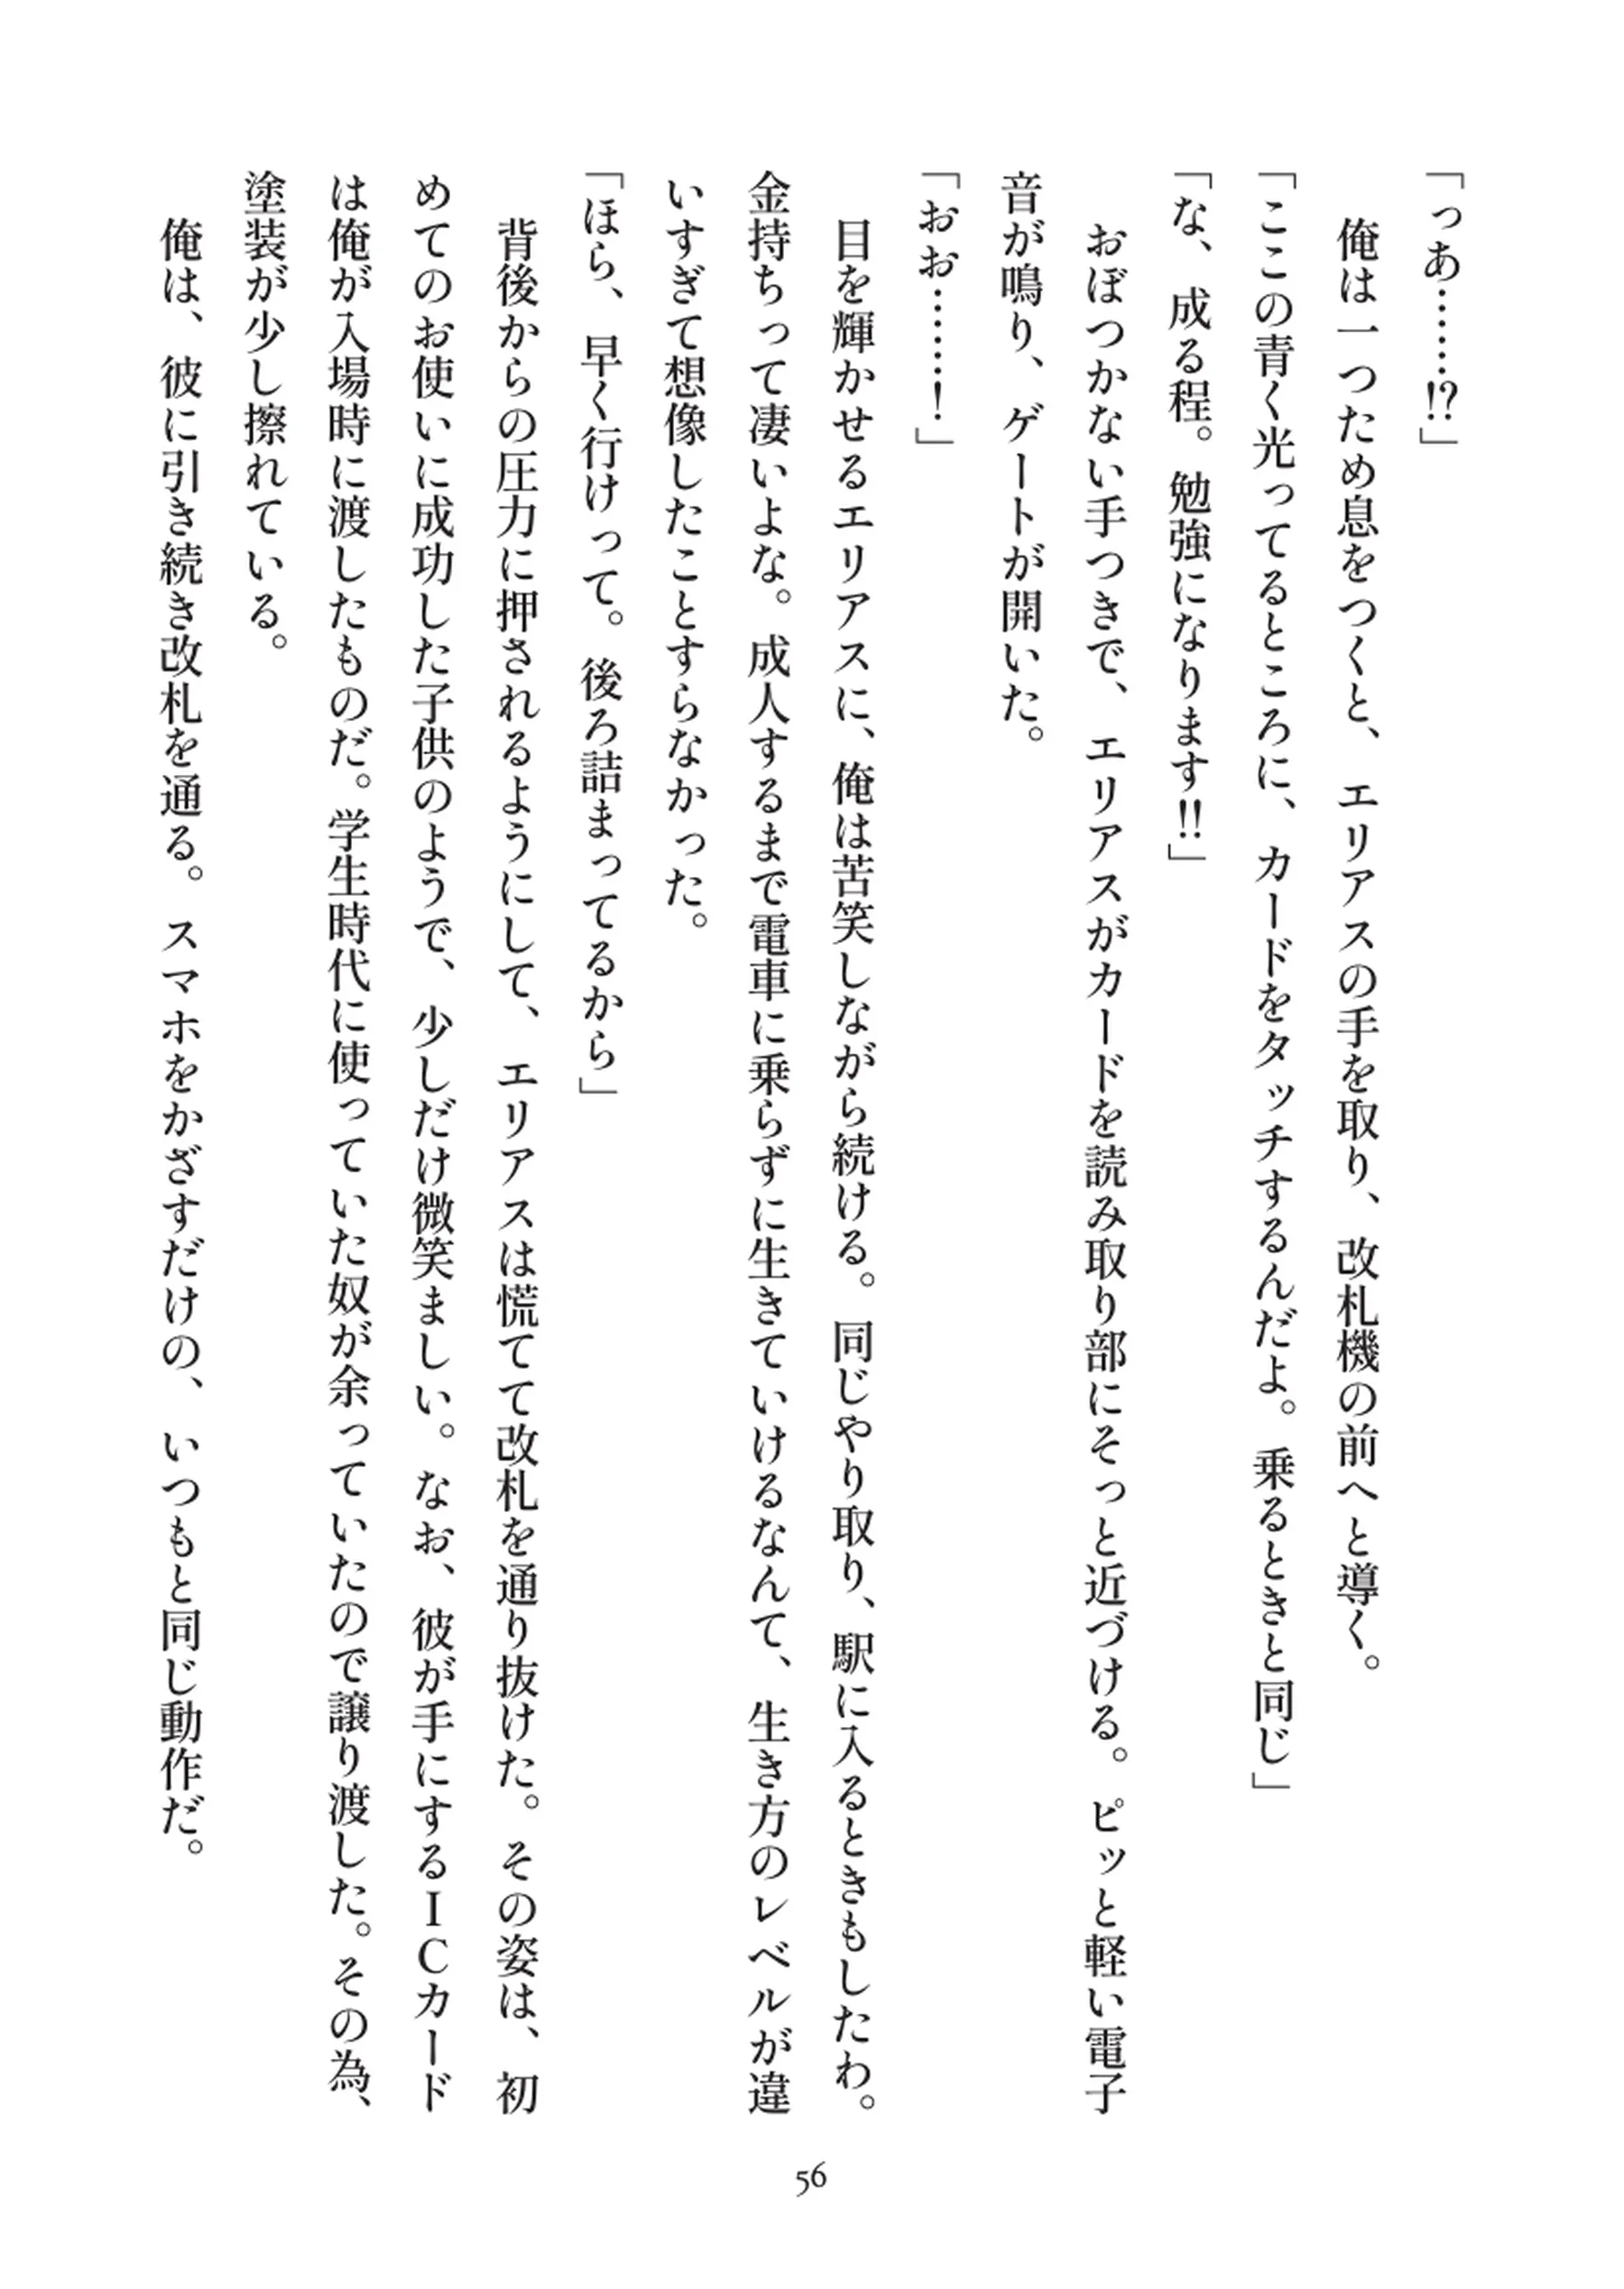 「っあ………⁉」
　俺は一つため息をつくと、エリアスの手を取り、改札機の前へと導く。
「ここの青く光ってるところに、カードをタッチするんだよ。乗るときと同じ」
「な、成る程。勉強になります‼」
　おぼつかない手つきで、エリアスがカードを読み取り部にそっと近づける。ピッと軽い電子
音が鳴り、ゲートが開いた。
「おお………！」
　目を輝かせるエリアスに、俺は苦笑しながら続ける。同じやり取り、駅に入るときもしたわ。
金持ちって凄いよな。成人するまで電車に乗らずに生きていけるなんて、生き方のレベルが違
いすぎて想像したことすらなかった。
「ほら、早く行けって。後ろ詰まってるから」
　背後からの圧力に押されるようにして、エリアスは慌てて改札を通り抜けた。その姿は、初
めてのお使いに成功した子供のようで、少しだけ微笑ましい。なお、彼が手にするＩＣカード
は俺が入場時に渡したものだ。学生時代に使っていた奴が余っていたので譲り渡した。その為、
塗装が少し擦れている。
　俺は、彼に引き続き改札を通る。スマホをかざすだけの、いつもと同じ動作だ。
56